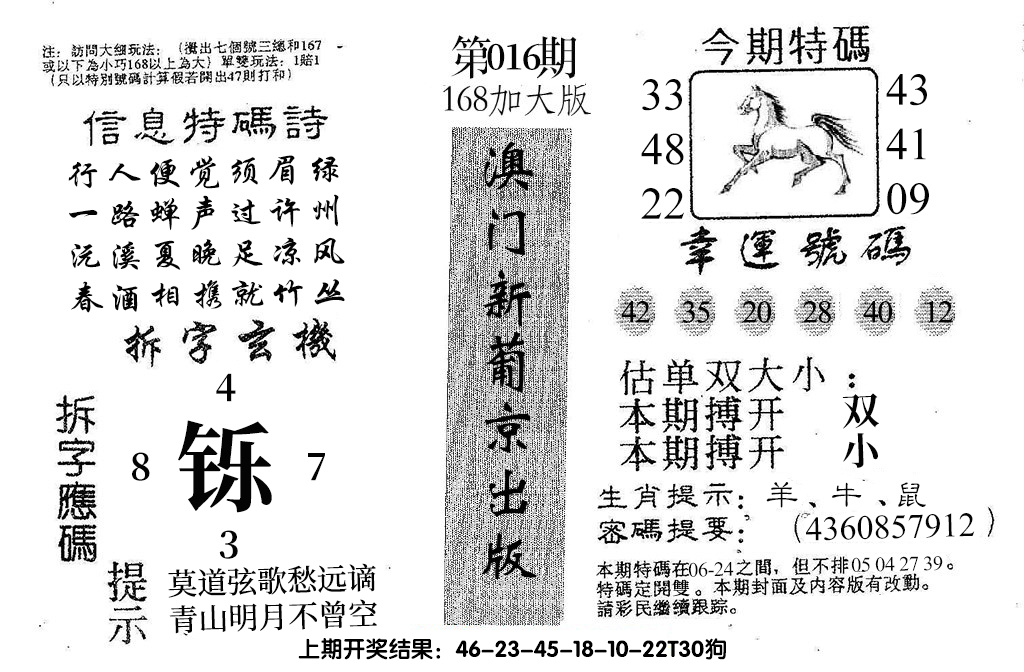 注：訪問大细玩法：（攪出七個號三總和167
或以下為小巧168以上為大）單雙玩法：1賠1
（只以特別號碼計算假若開出47則打和）
信息特碼詩
行人便觉须眉绿
一路蝉声过许州
沅溪夏晚足凉风
春酒相携就竹丛
拆字玄機
4
拆字應碼
8 铄 7
3
提示
莫道弦歌愁远谪
青山明月不曾空
第016期
168加大版
澳门新葡京出版
今期特碼
33 43
48 41
22 09
幸運號碼
42 35 20 28 40 12
估单双大小：
本期搏开 双
本期搏开 小
生肖提示：羊、牛、鼠
密碼提要：（4360857912）
本期特碼在06-24之間，但不排05 04 27 39。
特碼定開雙。本期封面及内容版有改動。
請彩民繼續跟踪。
上期开奖结果：46-23-45-18-10-22T30狗